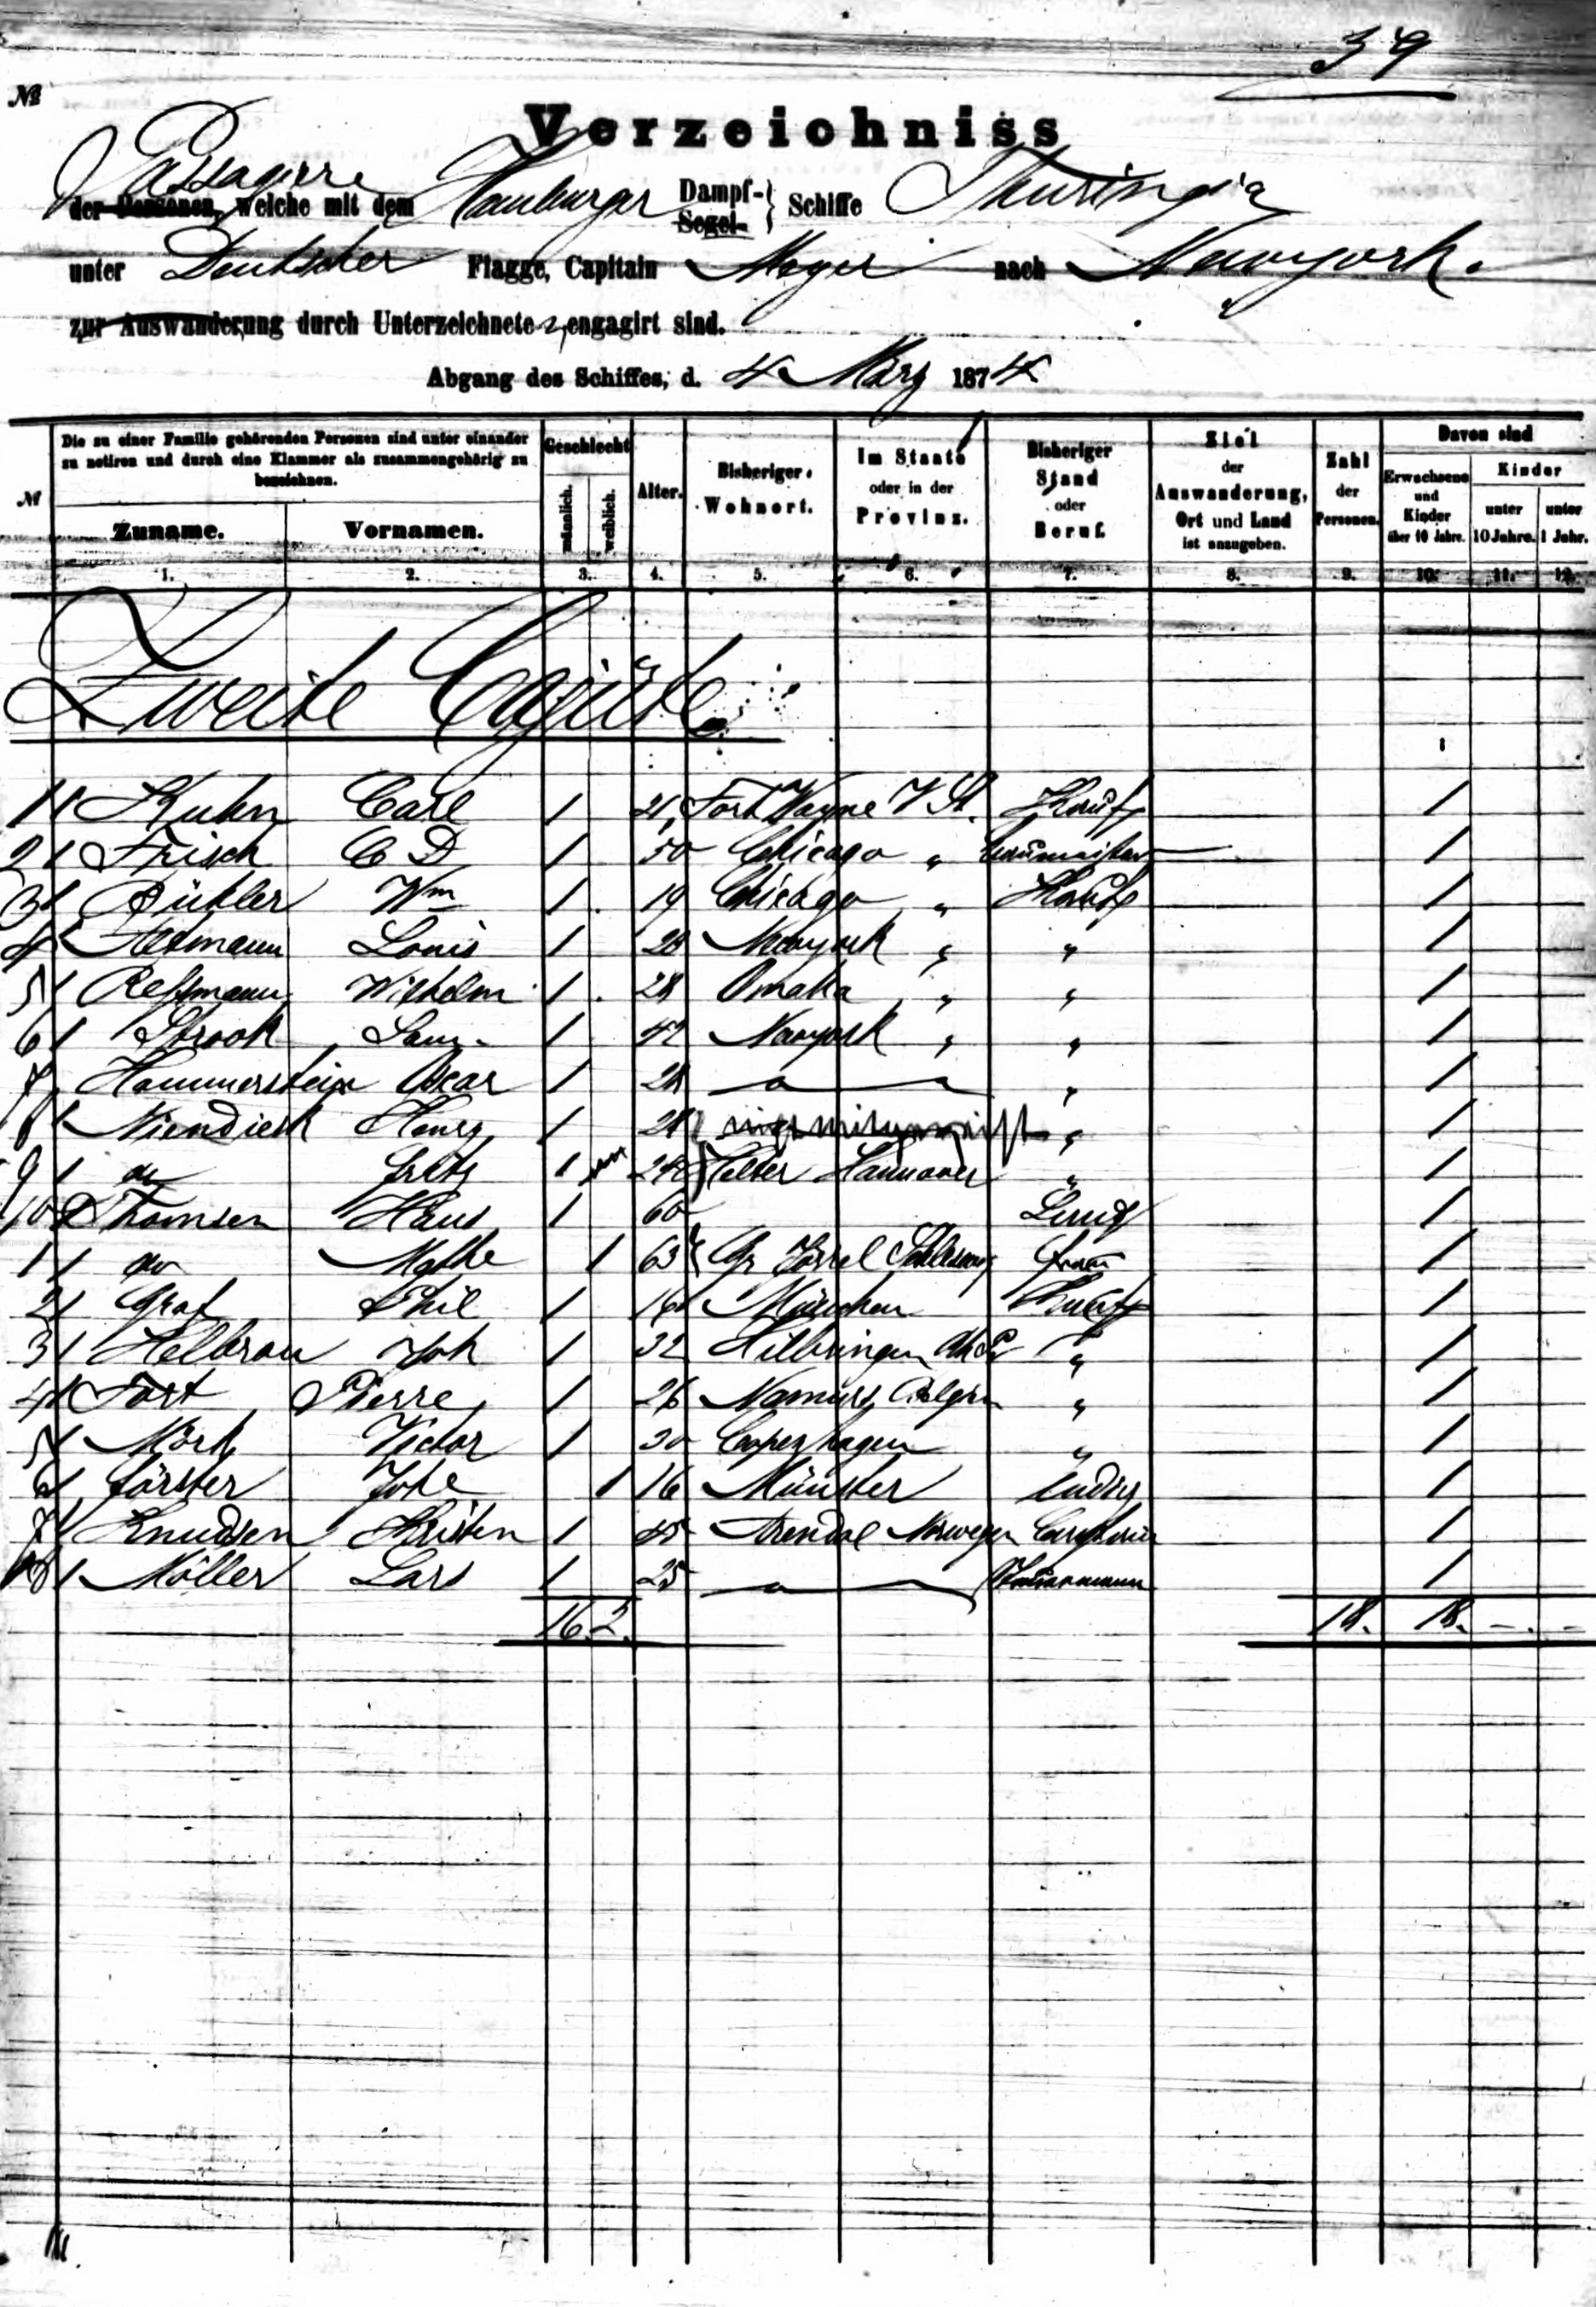 39
№
Verzeichniss
Passagiere
der Personen, welche mit dem Hamburger Dampf- Segel- } Schiffe Thuringia
unter Deutscher Flagge, Capitain Meyer nach Newyork.
zur Auswanderung durch Unterzeichnete engagirt sind.
Abgang des Schiffes, d. 4 März 1874
№ Die zu einer Familie gehörenden Personen sind unter einander zu notiren und durch eine Klammer als zusammengehörig zu bezeichnen. Zuname. Vornamen. Geschlecht männlich. weiblich. Alter. Bisheriger Wohnort. Im Staate oder in der Provinz. Bisheriger Stand oder Beruf. Ziel der Auswanderung, Ort und Land ist anzugeben. Zahl der Personen. Davon sind Erwachsene und Kinder über 10 Jahre. Kinder unter 10 Jahre. unter 1 Jahr.
1. 2. 3. 4. 5. 6. 7. 8. 9. 10. 11. 12.
Zweite Cajüte
1 1 Kuhn Carl 1 21 Fort Wayne V St. Kaufm 1
2 1 Frisch C D 1 50 Chicago " Baumeister 1
3 1 Wm 1 19 Chicago " Kaufm 1
4 1 Louis 1 28 Newyork " " 1
5 1 Wilhelm 1 28 Omaha " " 1
6 1 Strook Sam. 1 42 Newyork " " 1
7 Hammerstein Oscar 1 28 " 1
8 1 Niendieck Henry 1 28 " 1
9 1 do Fritz 1 24 Hannover " 1
10 Thomsen Hans 1 60 1
1 1 do 1 63 Gr Jörrel Schleswig Frau 1
2 1 Graf Phil 1 16 München Kaufm 1
3 1 Helbron Joh 1 32 Hilbringen " 1
4 1 Fort Pierre 1 26 Namurs Belgien " 1
5 1 Mörk Victor 1 30 Copenhagen " 1
6 1 Förster 1 16 Münster ledig 1
7 1 Knudsen Kristen 1 45 Arendal Norwegen 1
18 1 Möller Lars 1 25 1
16. 2. 18. 18. -. -